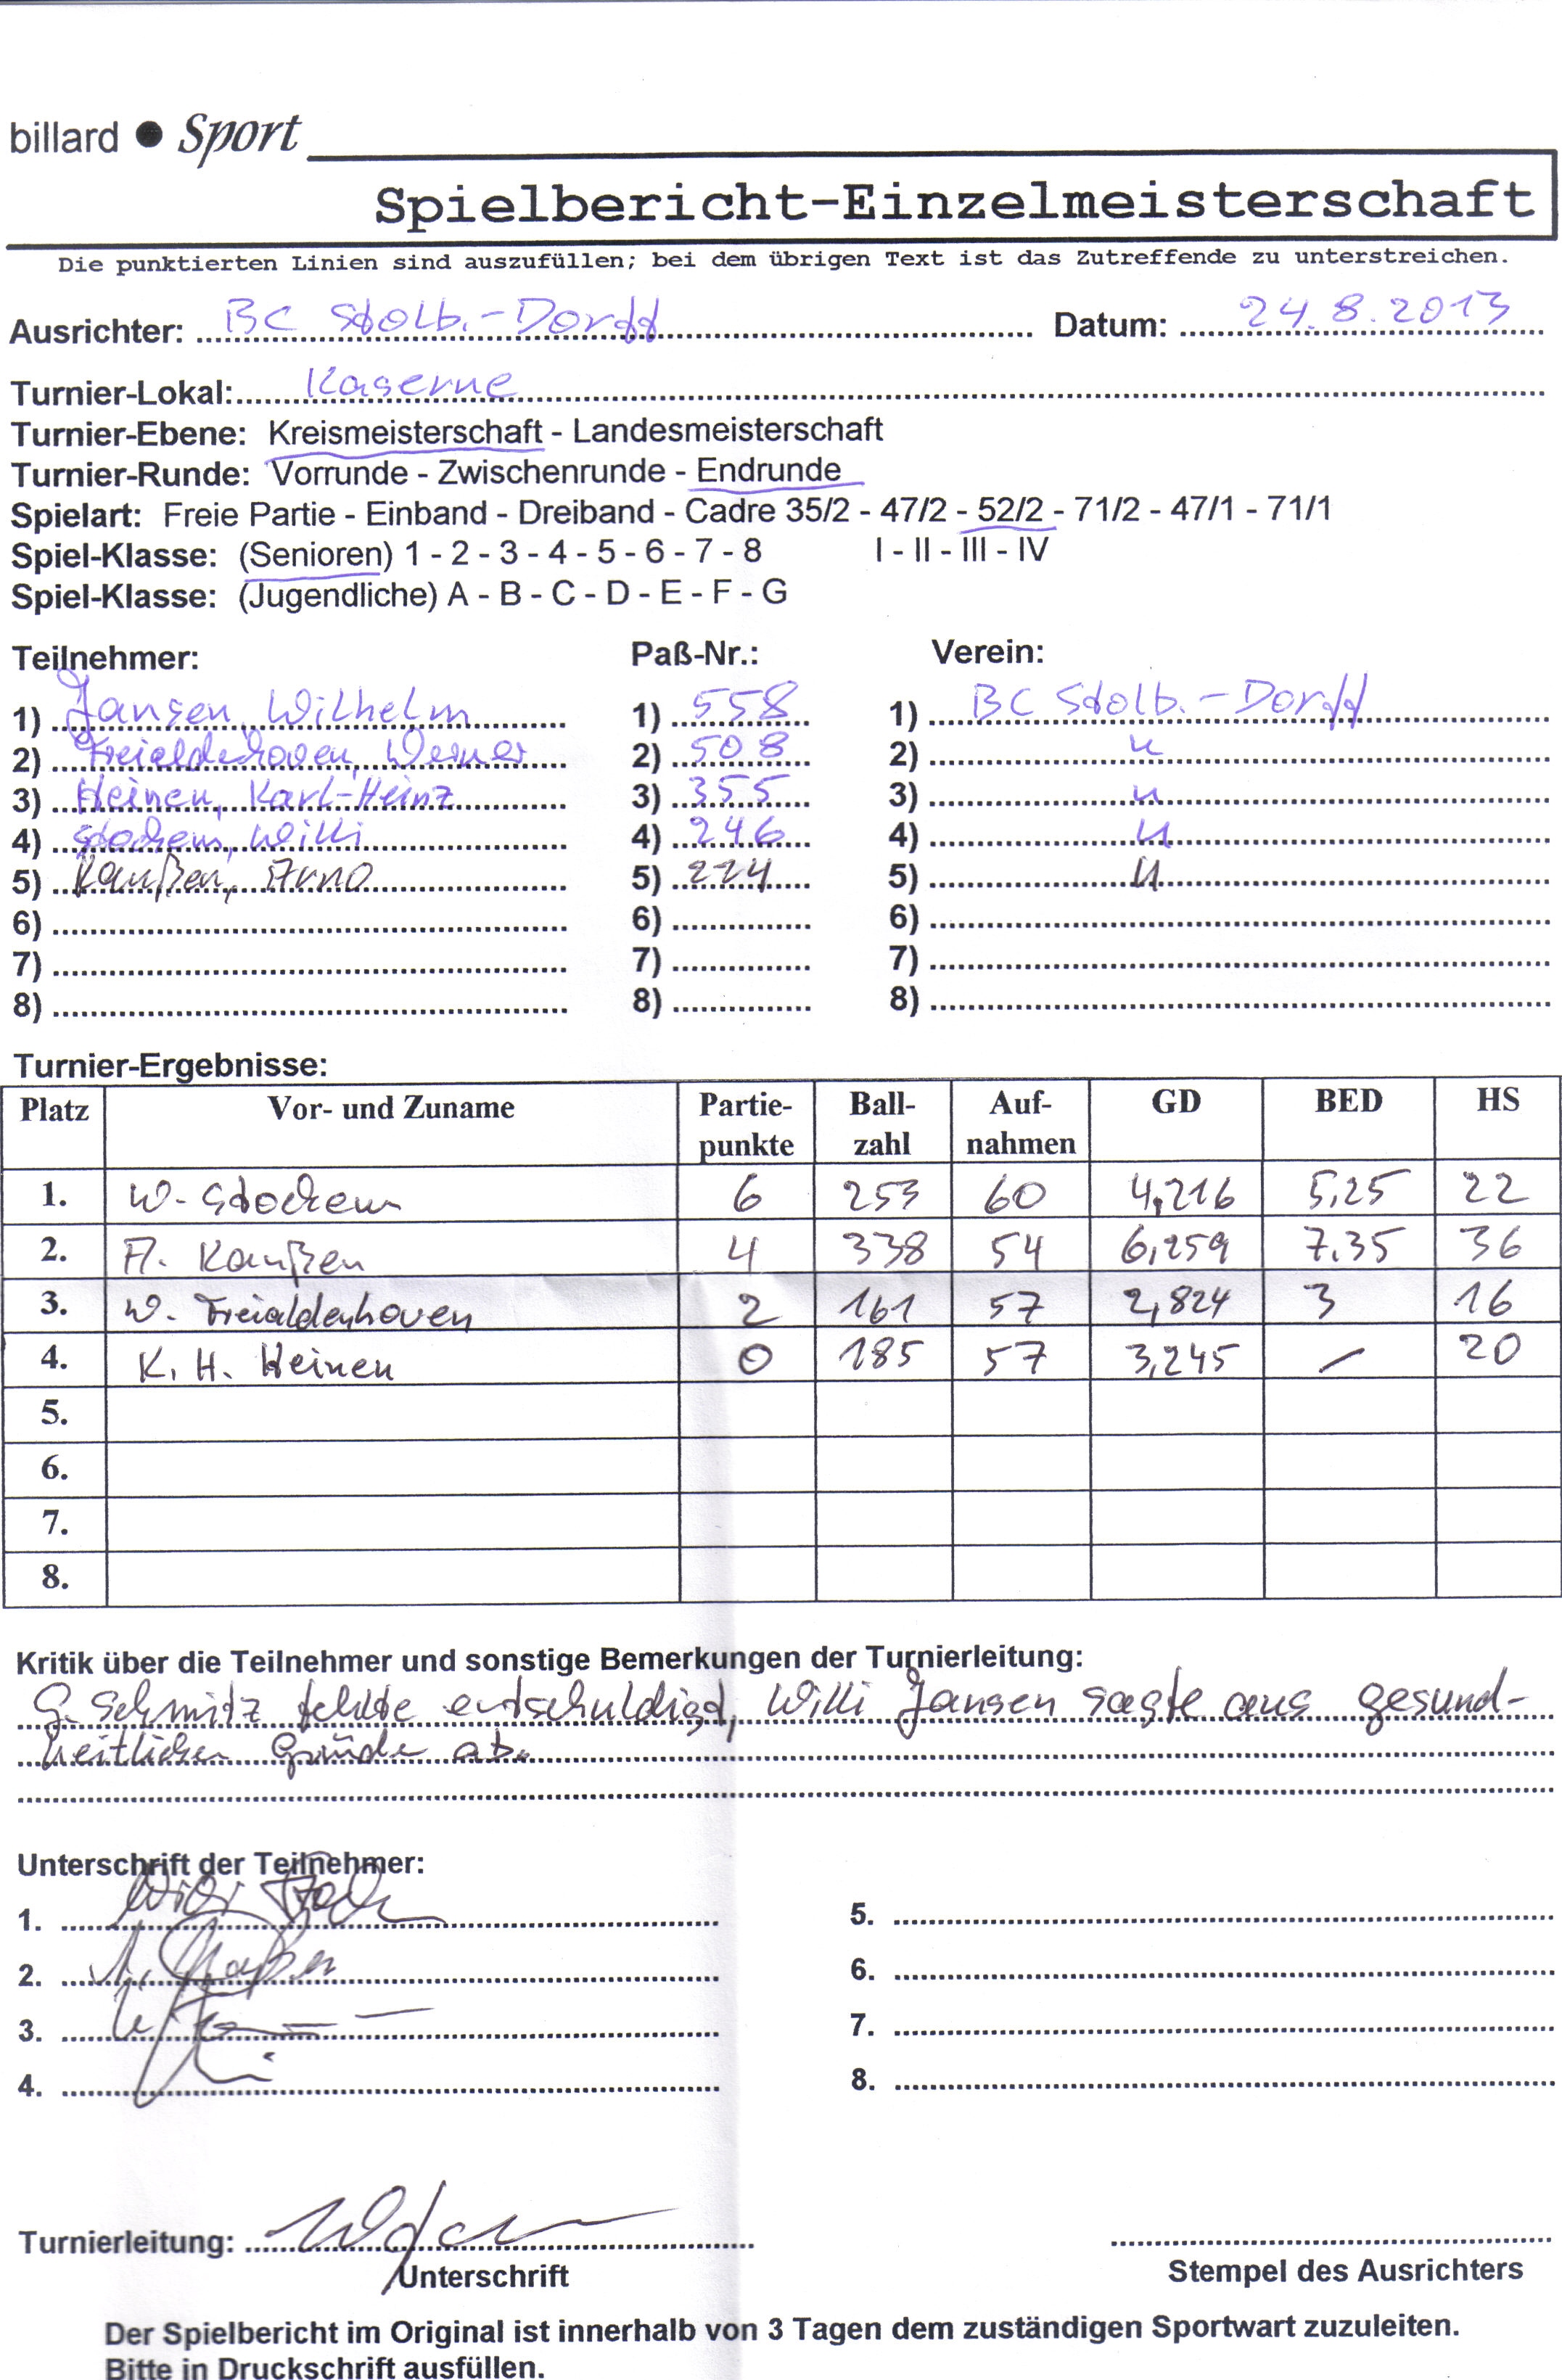 billard ● Sport
Spielbericht-Einzelmeisterschaft
Die punktierten Linien sind auszufüllen; bei dem übrigen Text ist das Zutreffende zu unterstreichen.
Ausrichter: BC Stolb.-Dorff Datum: 24.8.2013
Turnier-Lokal: Kaserne
Turnier-Ebene: Kreismeisterschaft - Landesmeisterschaft
Turnier-Runde: Vorrunde - Zwischenrunde - Endrunde
Spielart: Freie Partie - Einband - Dreiband - Cadre 35/2 - 47/2 - 52/2 - 71/2 - 47/1 - 71/1
Spiel-Klasse: (Senioren) 1 - 2 - 3 - 4 - 5 - 6 - 7 - 8 I - II - III - IV
Spiel-Klasse: (Jugendliche) A - B - C - D - E - F - G
Teilnehmer: Paß-Nr.: Verein:
1) Jansen, Wilhelm 1) 558 1) BC Stolb.-Dorff
2) Freialdenhoven, Werner 2) 508 2) "
3) Heinen, Karl-Heinz 3) 355 3) "
4) Stockem, Willi 4) 246 4) "
5) Kaußen, Arno 5) 224 5) "
6) 6) 6)
7) 7) 7)
8) 8) 8)
Turnier-Ergebnisse:
Platz Vor- und Zuname Partie-punkte Ball-zahl Auf-nahmen GD BED HS
1. W. Stockem 6 253 60 4,216 5,25 22
2. A. Kaußen 4 338 54 6,259 7,35 36
3. W. Freialdenhoven 2 161 57 2,824 3 16
4. K. H. Heinen 0 185 57 3,245 / 20
5.
6.
7.
8.
Kritik über die Teilnehmer und sonstige Bemerkungen der Turnierleitung:
G. Schmitz fehlte entschuldigt, Willi Jansen sagte aus gesund-
heitlichen Gründen ab.
Unterschrift der Teilnehmer:
1. 5.
2. 6.
3. 7.
4. 8.
Turnierleitung:
Unterschrift Stempel des Ausrichters
Der Spielbericht im Original ist innerhalb von 3 Tagen dem zuständigen Sportwart zuzuleiten.
Bitte in Druckschrift ausfüllen.